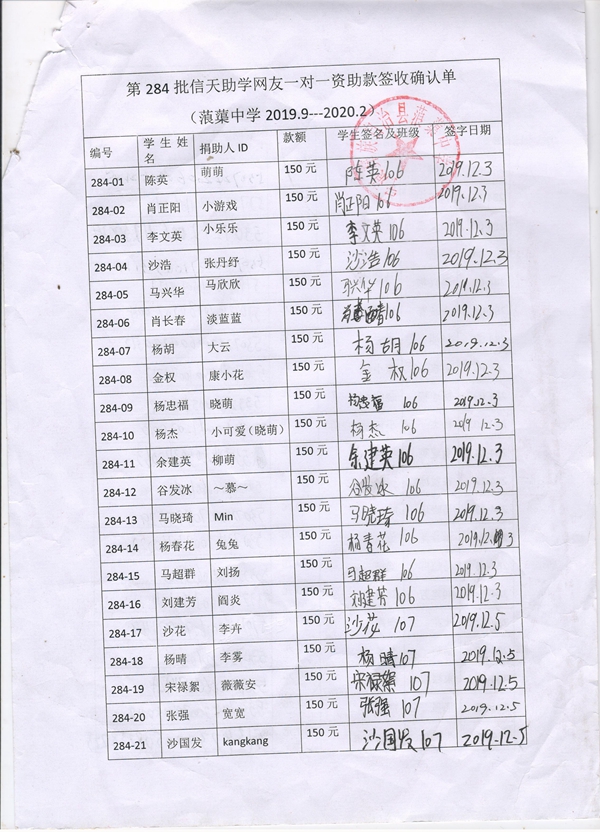 第 284 批信天助学网友一对一资助款签收确认单
（蒗蕖中学 2019.9---2020.2）
编号 学生姓名 捐助人 ID 款额 学生签名及班级 签字日期
284-01 陈英 萌萌 150 元 陈英 106 2019.12.3
284-02 肖正阳 小游戏 150 元 肖正阳 106 2019.12.3
284-03 李文英 小乐乐 150 元 李文英 106 2019.12.3
284-04 沙浩 张丹纾 150 元 沙浩 106 2019.12.3
284-05 马兴华 马欣欣 150 元 106 2019.12.3
284-06 肖长春 淡蓝蓝 150 元 106 2019.12.3
284-07 杨胡 大云 150 元 杨胡 106 2019.12.3
284-08 金权 康小花 150 元 金权 106 2019.12.3
284-09 杨忠福 晓萌 150 元 杨忠福 106 2019.12.3
284-10 杨杰 小可爱（晓萌） 150 元 杨杰 106 2019 12.3
284-11 余建英 柳萌 150 元 余建英 106 2019.12.3
284-12 谷发冰 ～慕～ 150 元 谷发冰 106 2019.12.3
284-13 马晓琦 Min 150 元 马晓琦 106 2019.12.3
284-14 杨春花 兔兔 150 元 杨春花 106 2019.12.3
284-15 马超群 刘扬 150 元 马超群 106 2019.12.3
284-16 刘建芳 阎炎 150 元 刘建芳 106 2019.12.3
284-17 沙花 李卉 150 元 沙花 107 2019.12.5
284-18 杨晴 李雾 150 元 杨晴 107 2019.12.5
284-19 宋禄絮 薇薇安 150 元 宋禄絮 107 2019.12.5
284-20 张强 宽宽 150 元 张强 107 2019.12.5
284-21 沙国发 kangkang 150 元 沙国发 107 2019.12.5